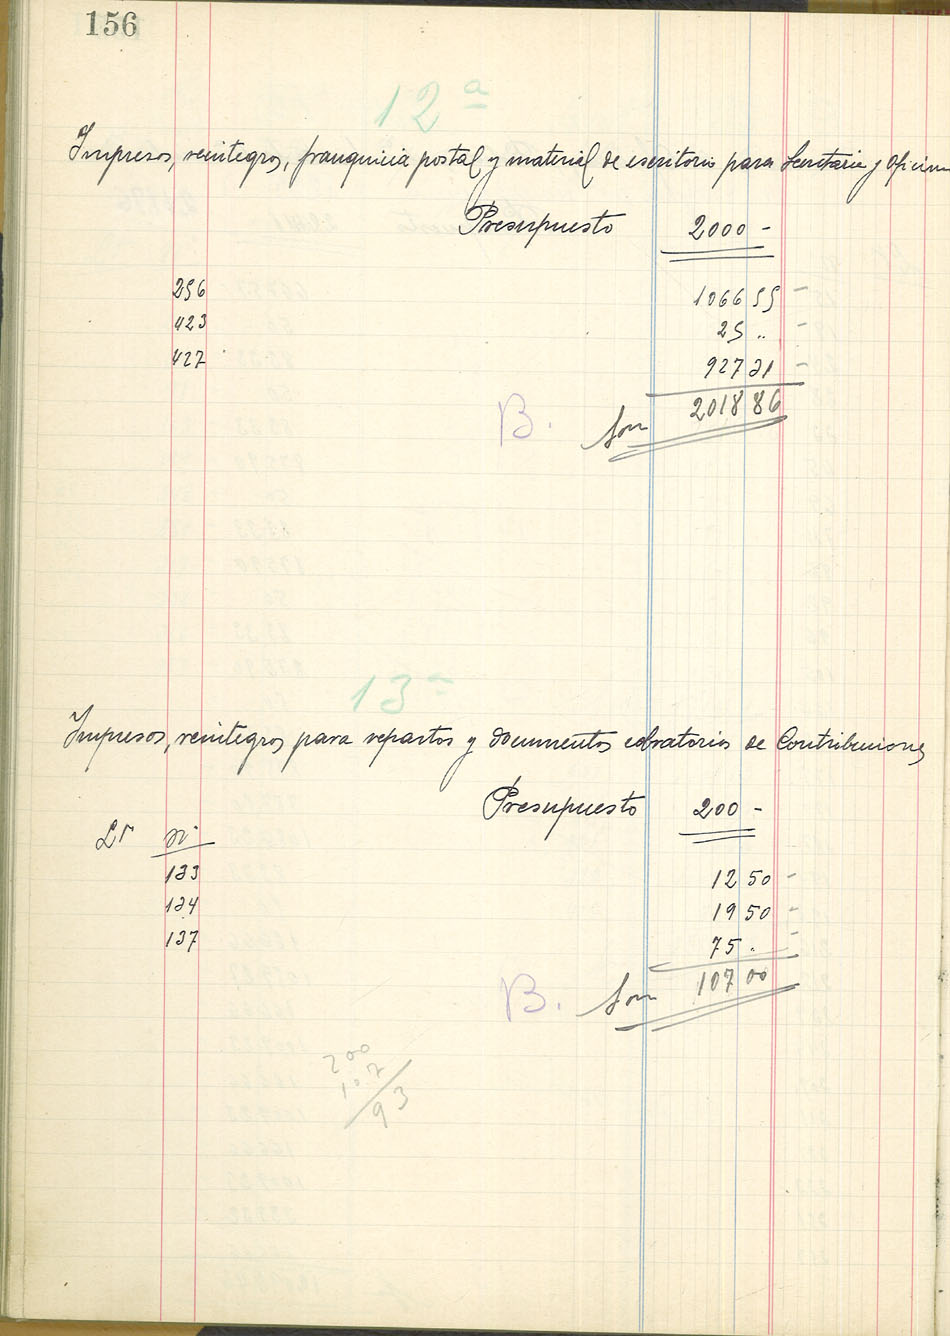 156
12ª
Impresos, reintegros, franquicia postal y material de escritorio para Secretaria y Oficinas
Presupuesto 2000 -
256 1066 55 -
423 25 .. -
427 927 31 -
B. Son 2018 86
13ª
Impresos, reintegros para repartos y documentos cobratorios de Contribuciones
Presupuesto 200 -
Lr nº
133 12 50 -
134 19 50 -
137 75 . -
B. Son 107 00
200
107
93